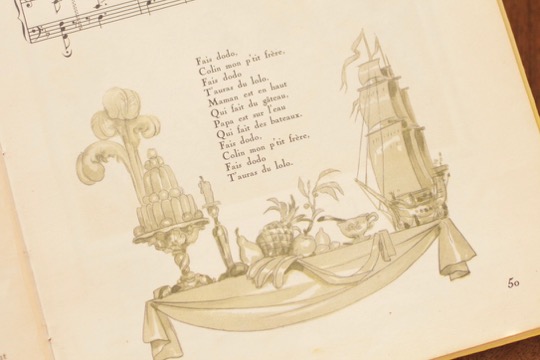 Fais dodo,
Colin mon p'tit frère,
Fais dodo
T'auras du lolo.
Maman est en haut
Qui fait du gâteau,
Papa est sur l'eau
Qui fait des bateaux.
Fais dodo,
Colin mon p'tit frère,
Fais dodo
T'auras du lolo.
50